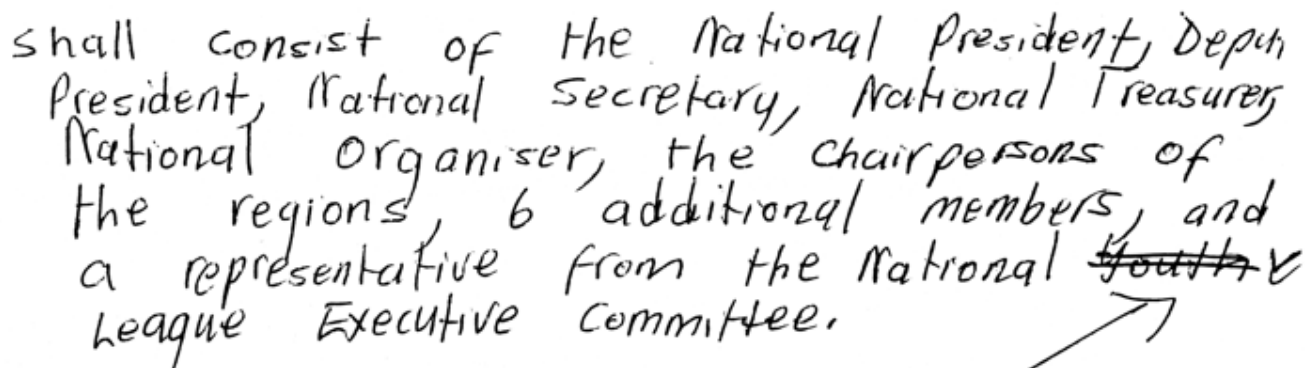 shall consist of the National President, Deputy
President, National Secretary, National Treasurer,
National Organiser, the Chairpersons of
the regions, 6 additional members, and
a representative from the National Youth
League Executive Committee.